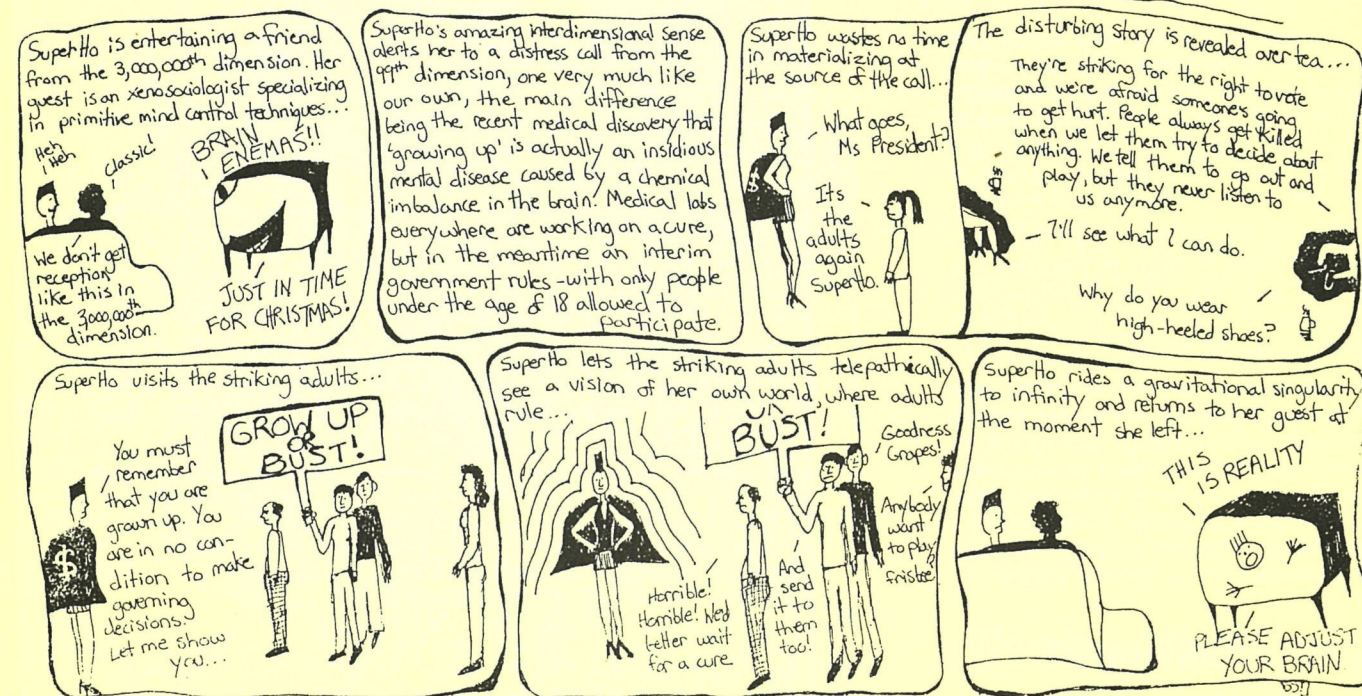 SuperHo is entertaining a friend
from the 3,000,000th dimension. Her
guest is an xenosociologist specializing
in primitive mind control techniques...
Heh
Heh
Classic!
BRAIN
ENEMAS!!
We don't get
reception
like this in
the 3,000,000th
dimension.
JUST IN TIME
FOR CHRISTMAS!
SuperHo's amazing interdimensional sense
alerts her to a distress call from the
99th dimension, one very much like
our own, the main difference
being the recent medical discovery that
'growing up' is actually an insidious
mental disease caused by a chemical
imbalance in the brain. Medical labs
everywhere are working on a cure,
but in the meantime an interim
government rules - with only people
under the age of 18 allowed to
participate.
SuperHo wastes no time
in materializing at
the source of the call...
What goes,
Ms President?
$
Its
the
adults
again
SuperHo.
The disturbing story is revealed over tea...
They're striking for the right to vote
and we're afraid someone's going
to get hurt. People always get killed
when we let them try to decide about
anything. We tell them to go out and
play, but they never listen to
us anymore.
I'll see what I can do.
Why do you wear
high-heeled shoes?
SuperHo visits the striking adults...
You must
remember
that you are
grown up. You
are in no con-
dition to make
governing
decisions.
Let me show
you...
$
GROW UP
OR
BUST!
SuperHo lets the striking adults telepathically
see a vision of her own world, where adults
rule...
OR
BUST!
Goodness
Grapes!
Horrible!
Horrible! We'd
better wait
for a cure
And
send
it to
them
too!
Anybody
want
to play
frisbee?
SuperHo rides a gravitational singularity
to infinity and returns to her guest at
the moment she left...
THIS
IS REALITY
PLEASE ADJUST
YOUR BRAIN